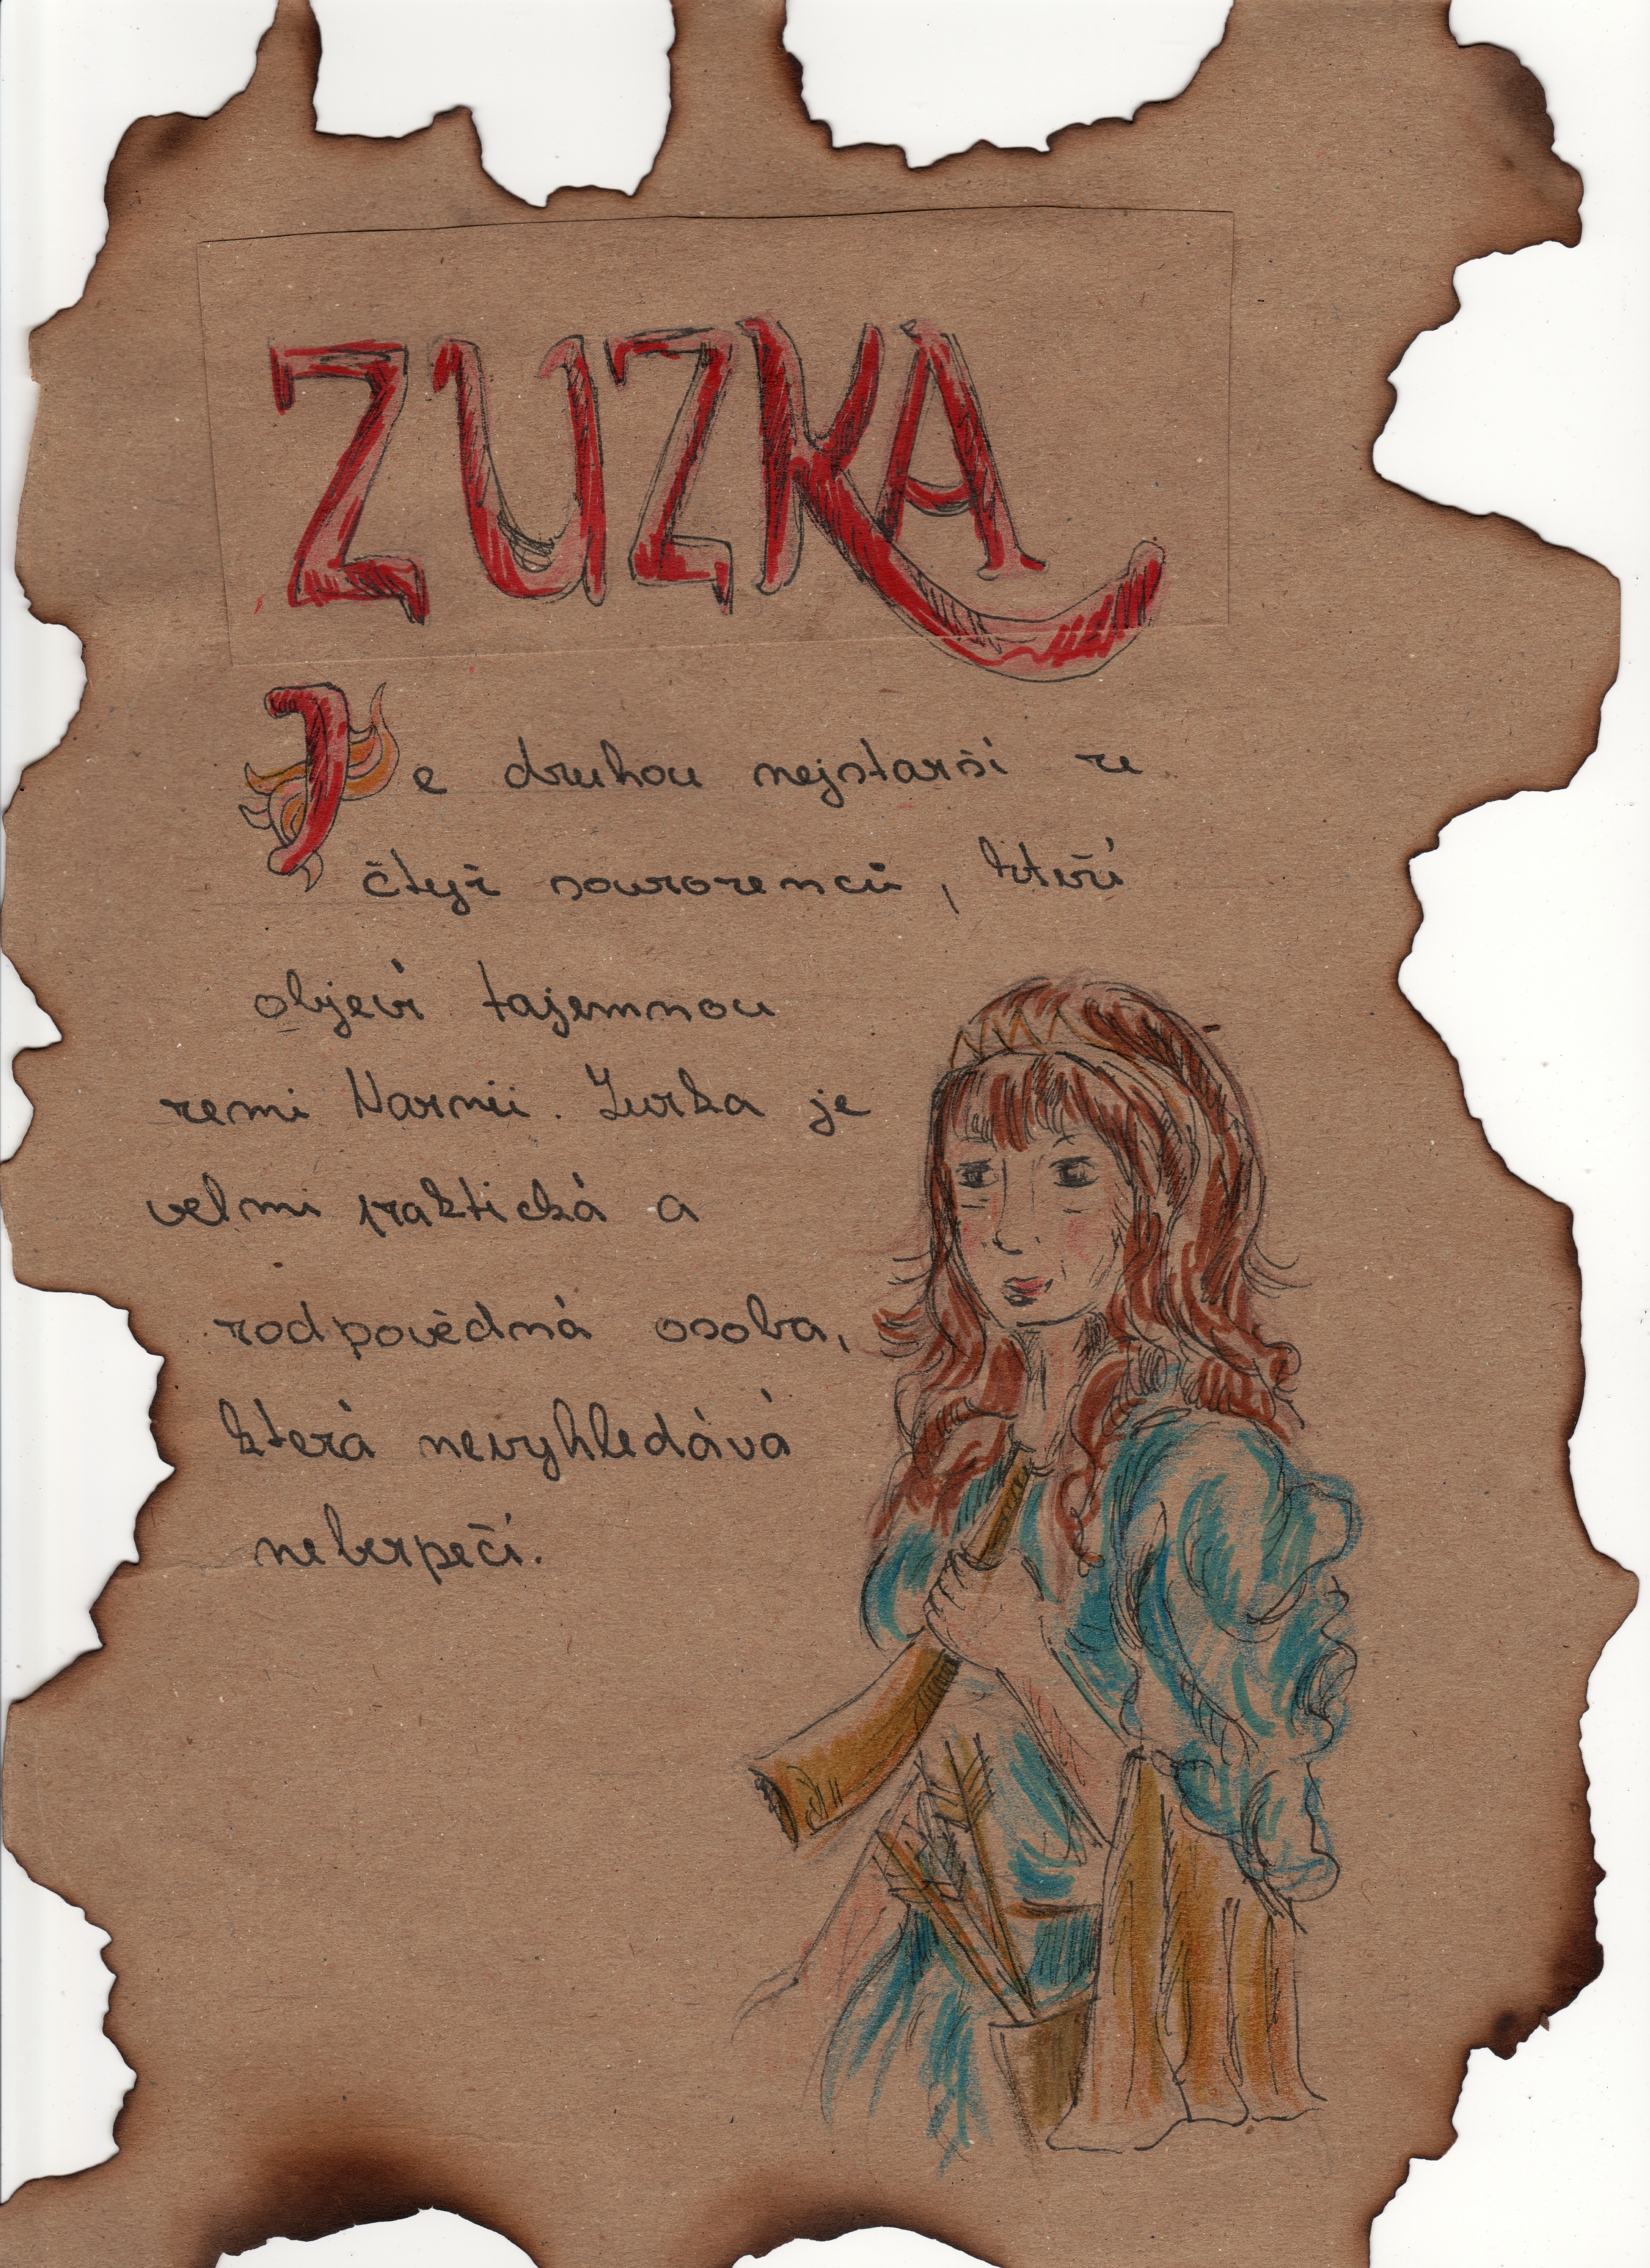 ZUZKA
Je druhou nejstarší ze
čtyř sourozenců, kteří
objeví tajemnou
zemi Narnii. Zuzka je
velmi praktická a
zodpovědná osoba,
která nevyhledává
nebezpečí.